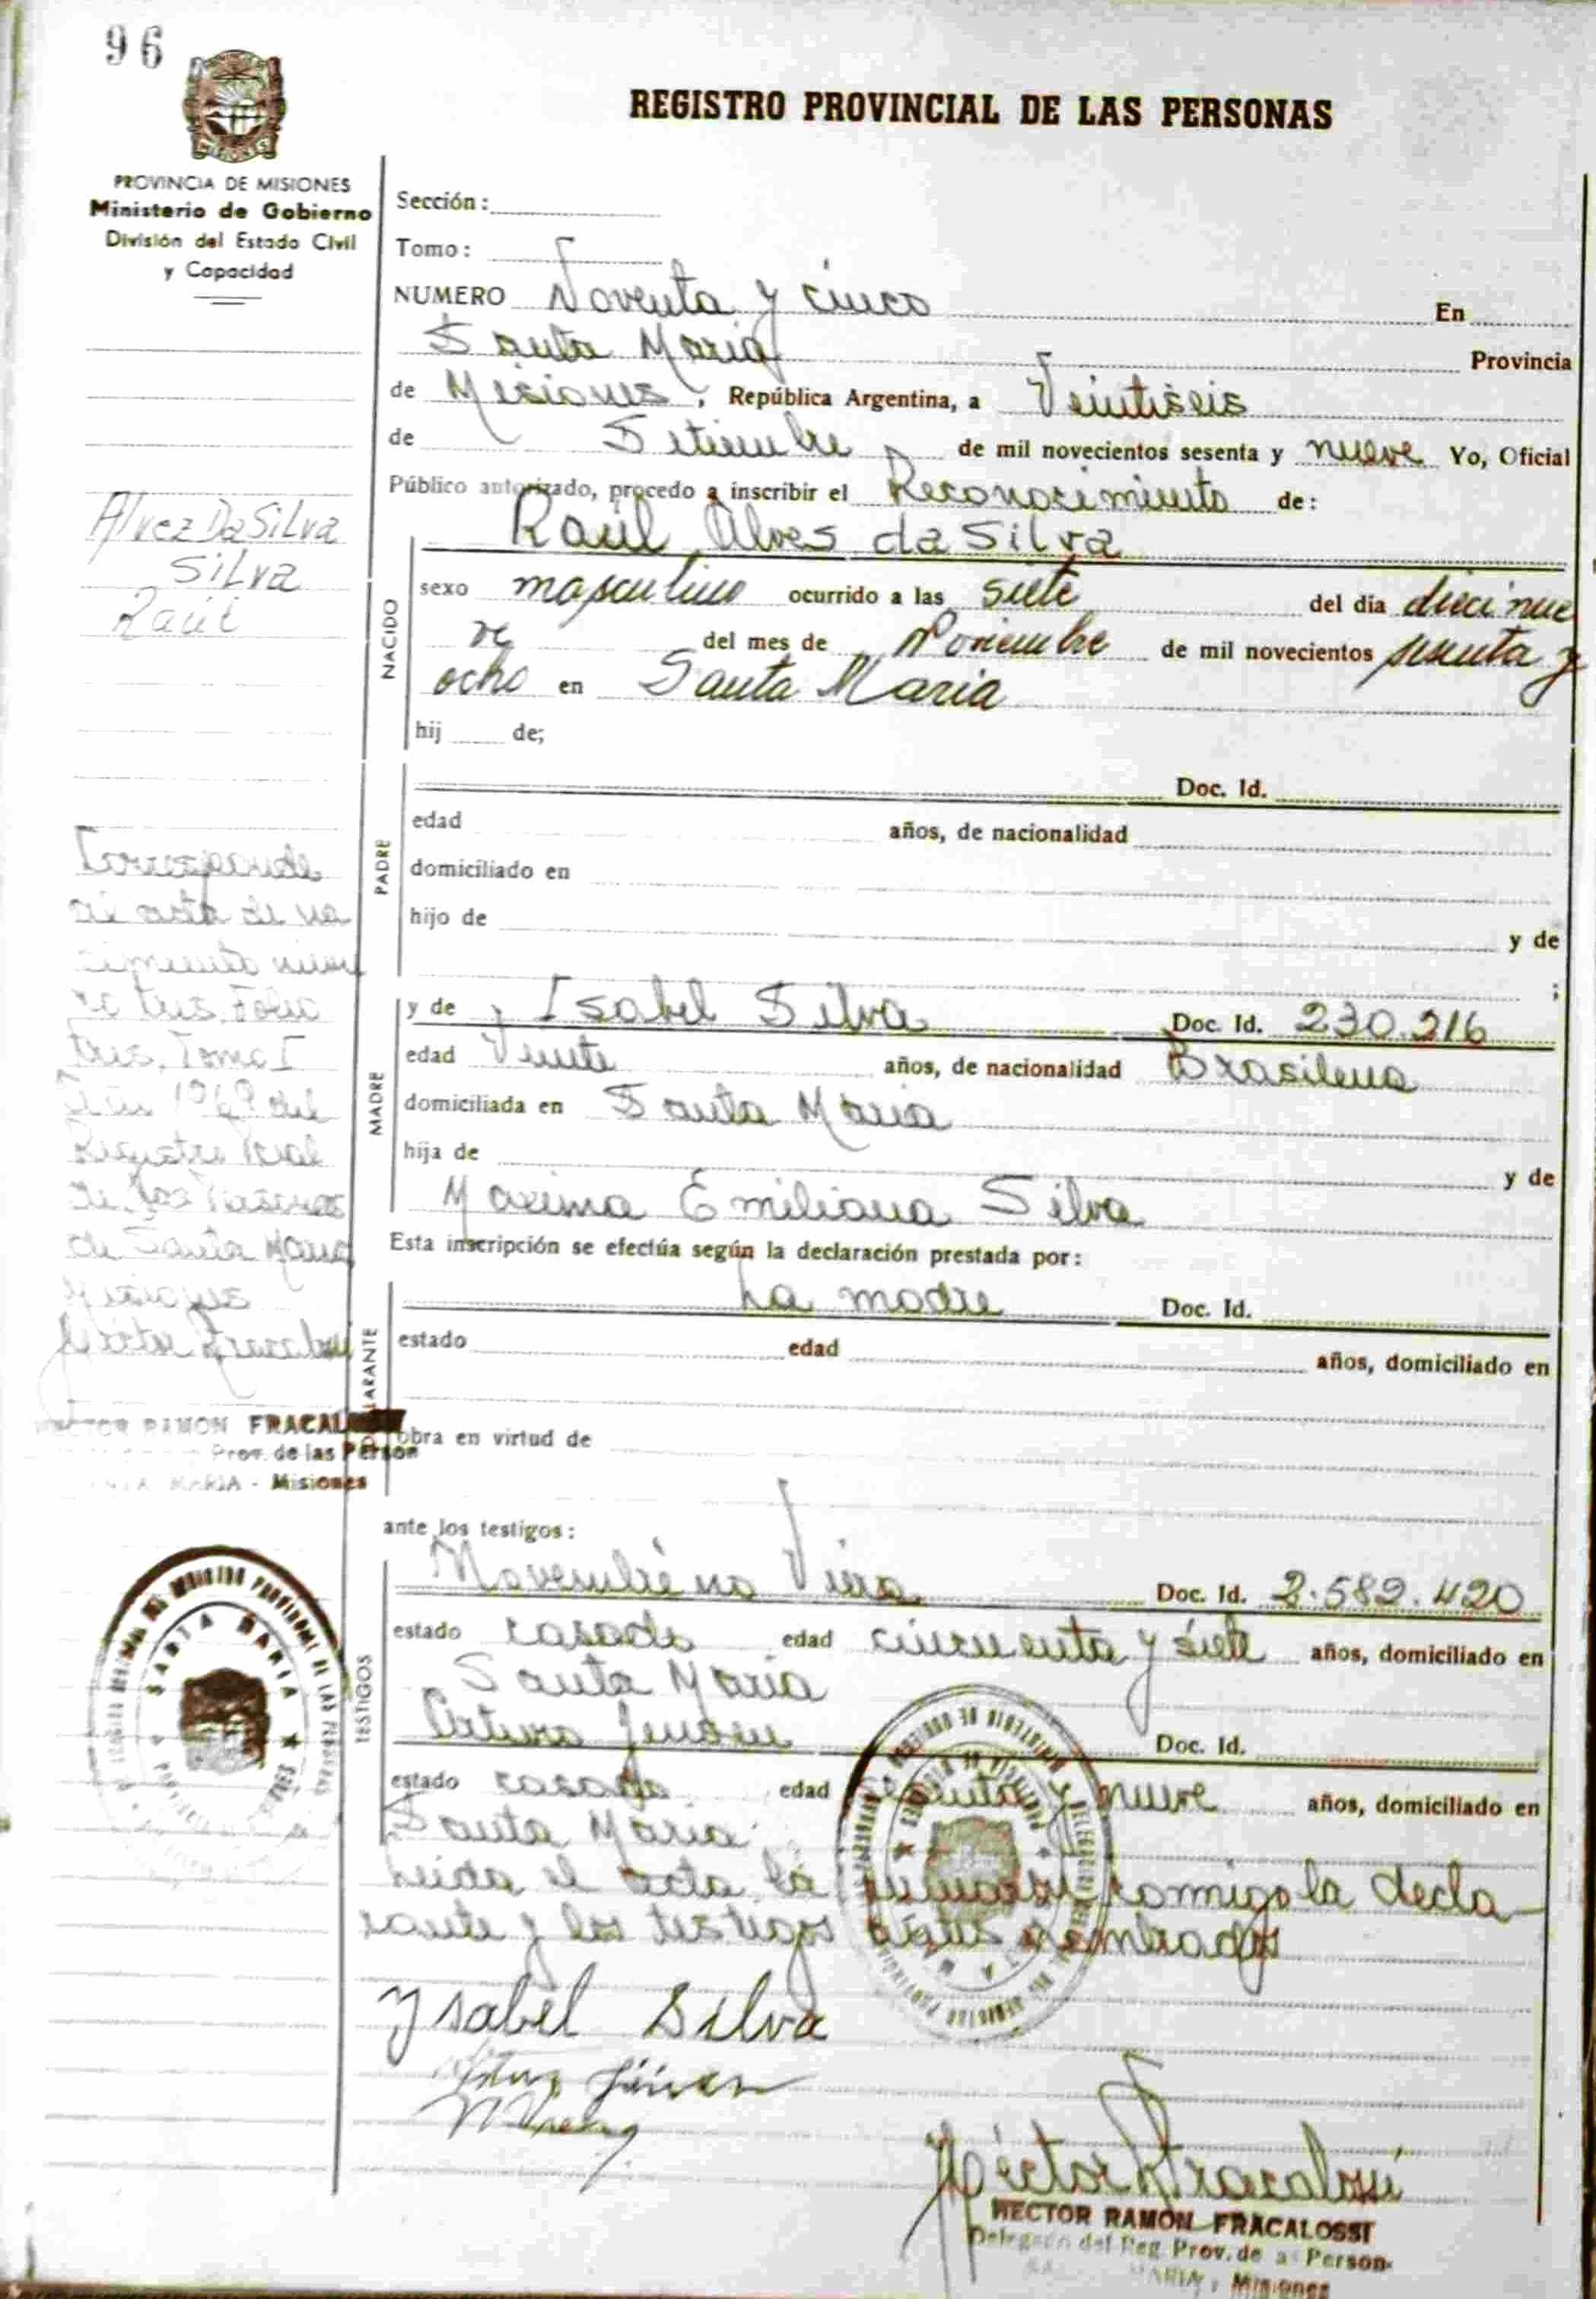 96
REGISTRO PROVINCIAL DE LAS PERSONAS
MISIONES
PROVINCIA DE MISIONES
Ministerio de Gobierno
División del Estado Civil
y Capacidad
Sección:
Tomo:
NUMERO Noventa y cinco En
Santa Maria Provincia
de Misiones, República Argentina, a Veintiseis
de Setiembre de mil novecientos sesenta y nueve Yo, Oficial
Público autorizado, procedo a inscribir el Reconocimiento de:
Raúl Alves da Silva
Alvez Da Silva
Silva
Raúl
NACIDO
sexo masculino ocurrido a las siete del día diecinue
ve del mes de Noviembre de mil novecientos sesenta y
ocho en Santa Maria
hij de;
PADRE
Doc. Id.
edad años, de nacionalidad
domiciliado en
hijo de y de
;
Corresponde
al acta de na
cimiento núme
ro tres, Folio
tres, Tomo I
Año 1969 del
Registro
de las Personas
de Santa Maria
Misiones
Héctor Fracalossi
HECTOR RAMON FRACAL
Prov. de las Person
MARIA - Misiones
MADRE
y de Isabel Silva Doc. Id. 230.216
edad Veinte años, de nacionalidad Brasilena
domiciliada en Santa Maria
hija de y de
Maxima Emiliana Silva
Esta inscripción se efectúa según la declaración prestada por:
La madre Doc. Id.
estado edad años, domiciliado en
obra en virtud de
ante los testigos:
TESTIGOS
Movembrino Viera Doc. Id. 2.582.420
estado casado edad cincuenta y siete años, domiciliado en
Santa Maria
Arturo Doc. Id.
estado casado edad y nueve años, domiciliado en
Santa Maria.
Leida el acta la conmigo la decla
rante y los testigos nombrados
SANTA MARIA
Ysabel Silva
Héctor Fracalossi
HECTOR RAMON FRACALOSSI
Delegado del Reg. Prov. de a Person
MARIA, Misiones